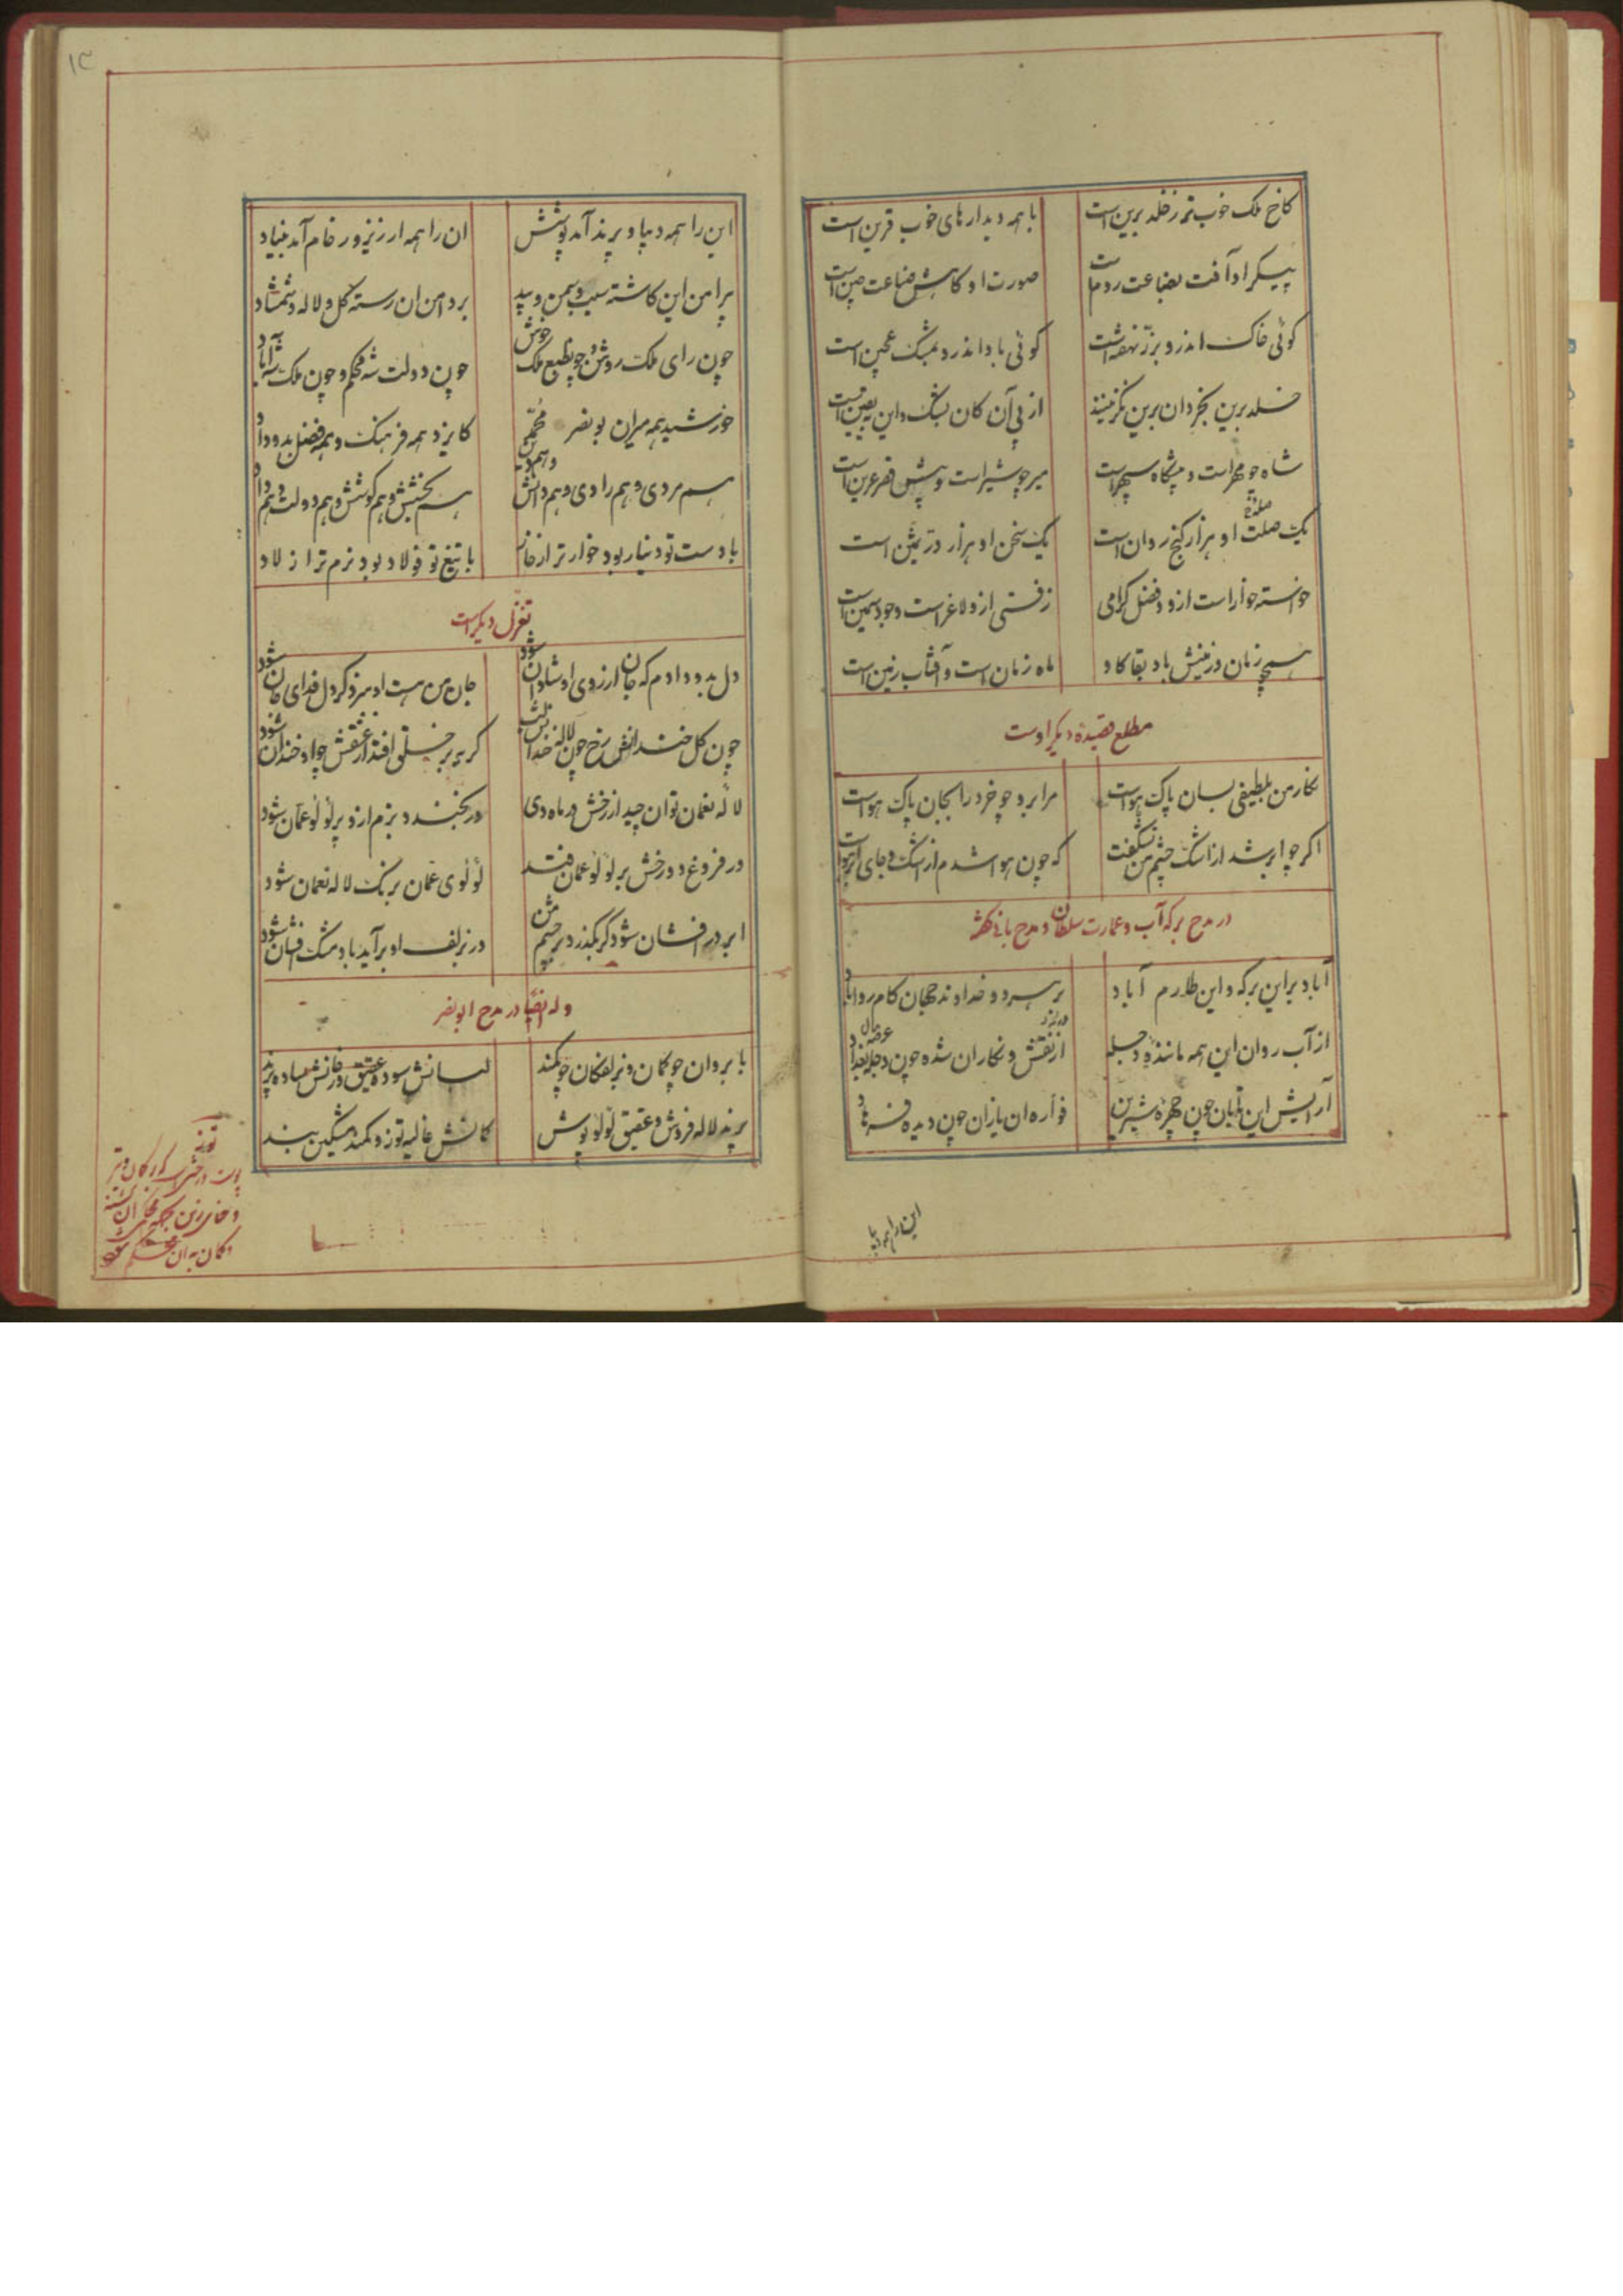 کاخ ملک خوب‌تر ز خلد برین است
با همه دیدارهای خوب قرین است
پیکر او آفت بضاعت روم است
صورت او کاهش ضاعت چین است
کوئی خاک اندرو بزرّ نهفته است
کوئی باد اندرو بمشک عجین است
خلد برین بخردان برین نکزینند
از پی آن کان بشک و این بیقین است
شاه چو مهر است و پیشکاه سپهر است
میر چو شیر است و پیش قصر عرین است
یک صلت او هزار کنج روان است
یک سخن او هزار درّ ثمین است
خواسته خوار است ازو و فضل کرامی
زفتی ازو لاغر است وجود سمین است
هیچ زمان و زمینش باد بقا کاو
ماه زمان است و آفتاب زمین است
مطلع قصیدهٔ دیکر اوست
نکار من بلطیفی بسان پاک هواست
مرا برو چو خرد را بجان پاک هواست
اکر چو ابر شد از اشک چشم من نشکفت
که چون هوا شدم از اشک و جای ابر هواست
در مدح برکه آب و عمارت سلطان و مدح بانی
آباد براین برکه و این طارم آباد
بر هر دو خداوند جهان کام روا باد
از آب روان این همه مانندهٔ دجله
از نقش و نکار ان شده چون دجله بغداد
آرایش این تابان چون چهرهٔ شیرین
فوّارهٔ ان یازان چون دیدهٔ فرهاد
این را همه دیبا
این را همه دیبا و پرند آمد پوشش
ان را همه ارزیز و رخام آمد بنیاد
پیرامن این کاشته سیب و سمن و بید
بر دامن ان رسته کل و لاله و شمشاد
چون رای ملک روشن و چو طبع ملک خوش
چون دولت شه محکم و چون ملک شه آباد
خورشید همه میران بو نصر محمّد
کایزد همه فرهنک و همه فضل بدو داد
هم مردی و هم رادی و هم دانش و هم دین
هم بخشش و هم کوشش و هم دولت و هم داد
با دست تو دینار بود خوارتر از خاک
با تیغ تو فولاد بود نرم‌تر از لاد
تغزل دیکر است
دل بدو دادم که جان از روی او شادان شود
جان من هست او سزد کر دل فدای جان شود
چون کل خندان رخ چون لالهٔ خندانش
کریه بر خلقی افتد از عشقش چو او خندان شود
لالهٔ نعمان توان چید از رخش در ماه دی
ور بخندد بزم ازو پر لؤلؤ عمان شود
ور فروغ دو رخش بر لؤلؤ عمان فتد
لؤلؤی عمان برنک لاله نعمان شود
ابر در افشان شود کر بکذرد بر چشم من
ور بزلف او برآید باد مشک افشان شود
وله ایضا در مدح ابو نصر
با بروان چو کمان و بزلفکان چو کمند
لبانش سوده عقیق و رخانش ساده پرند
پرند لاله فروش و عقیق لؤلؤ پوش
کمانش غالیه توز و کمند مشکین بند
توز
پوست درختی است که بر کمان و تیر
و کمان به آن محکم شود